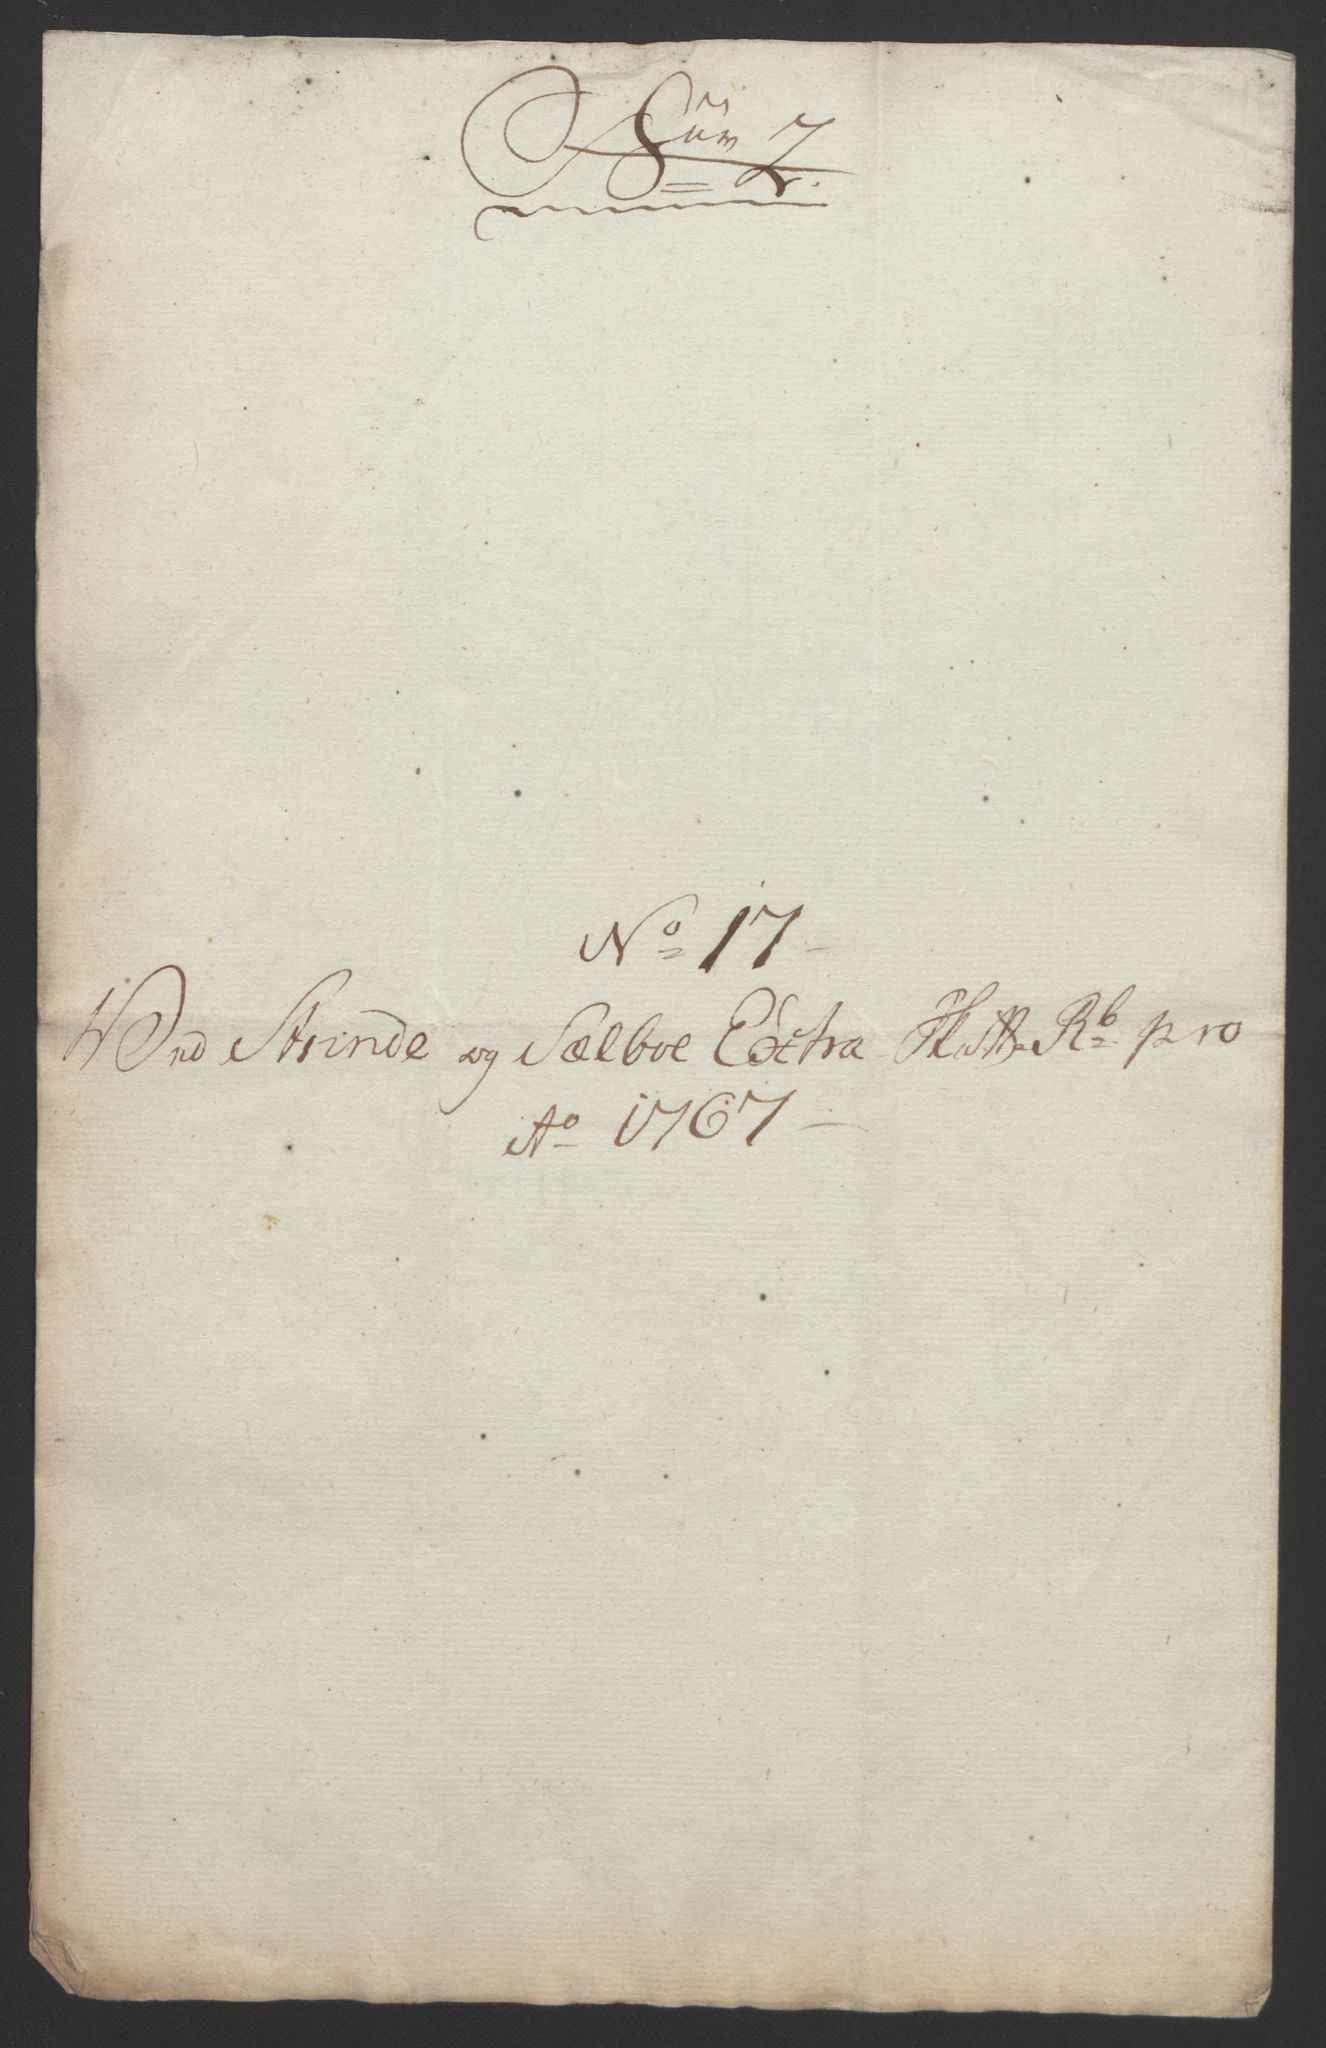 Num 7.
No 17
Ved Strinde og Sælboe Extra Skatte Rb pro
Ao 1767